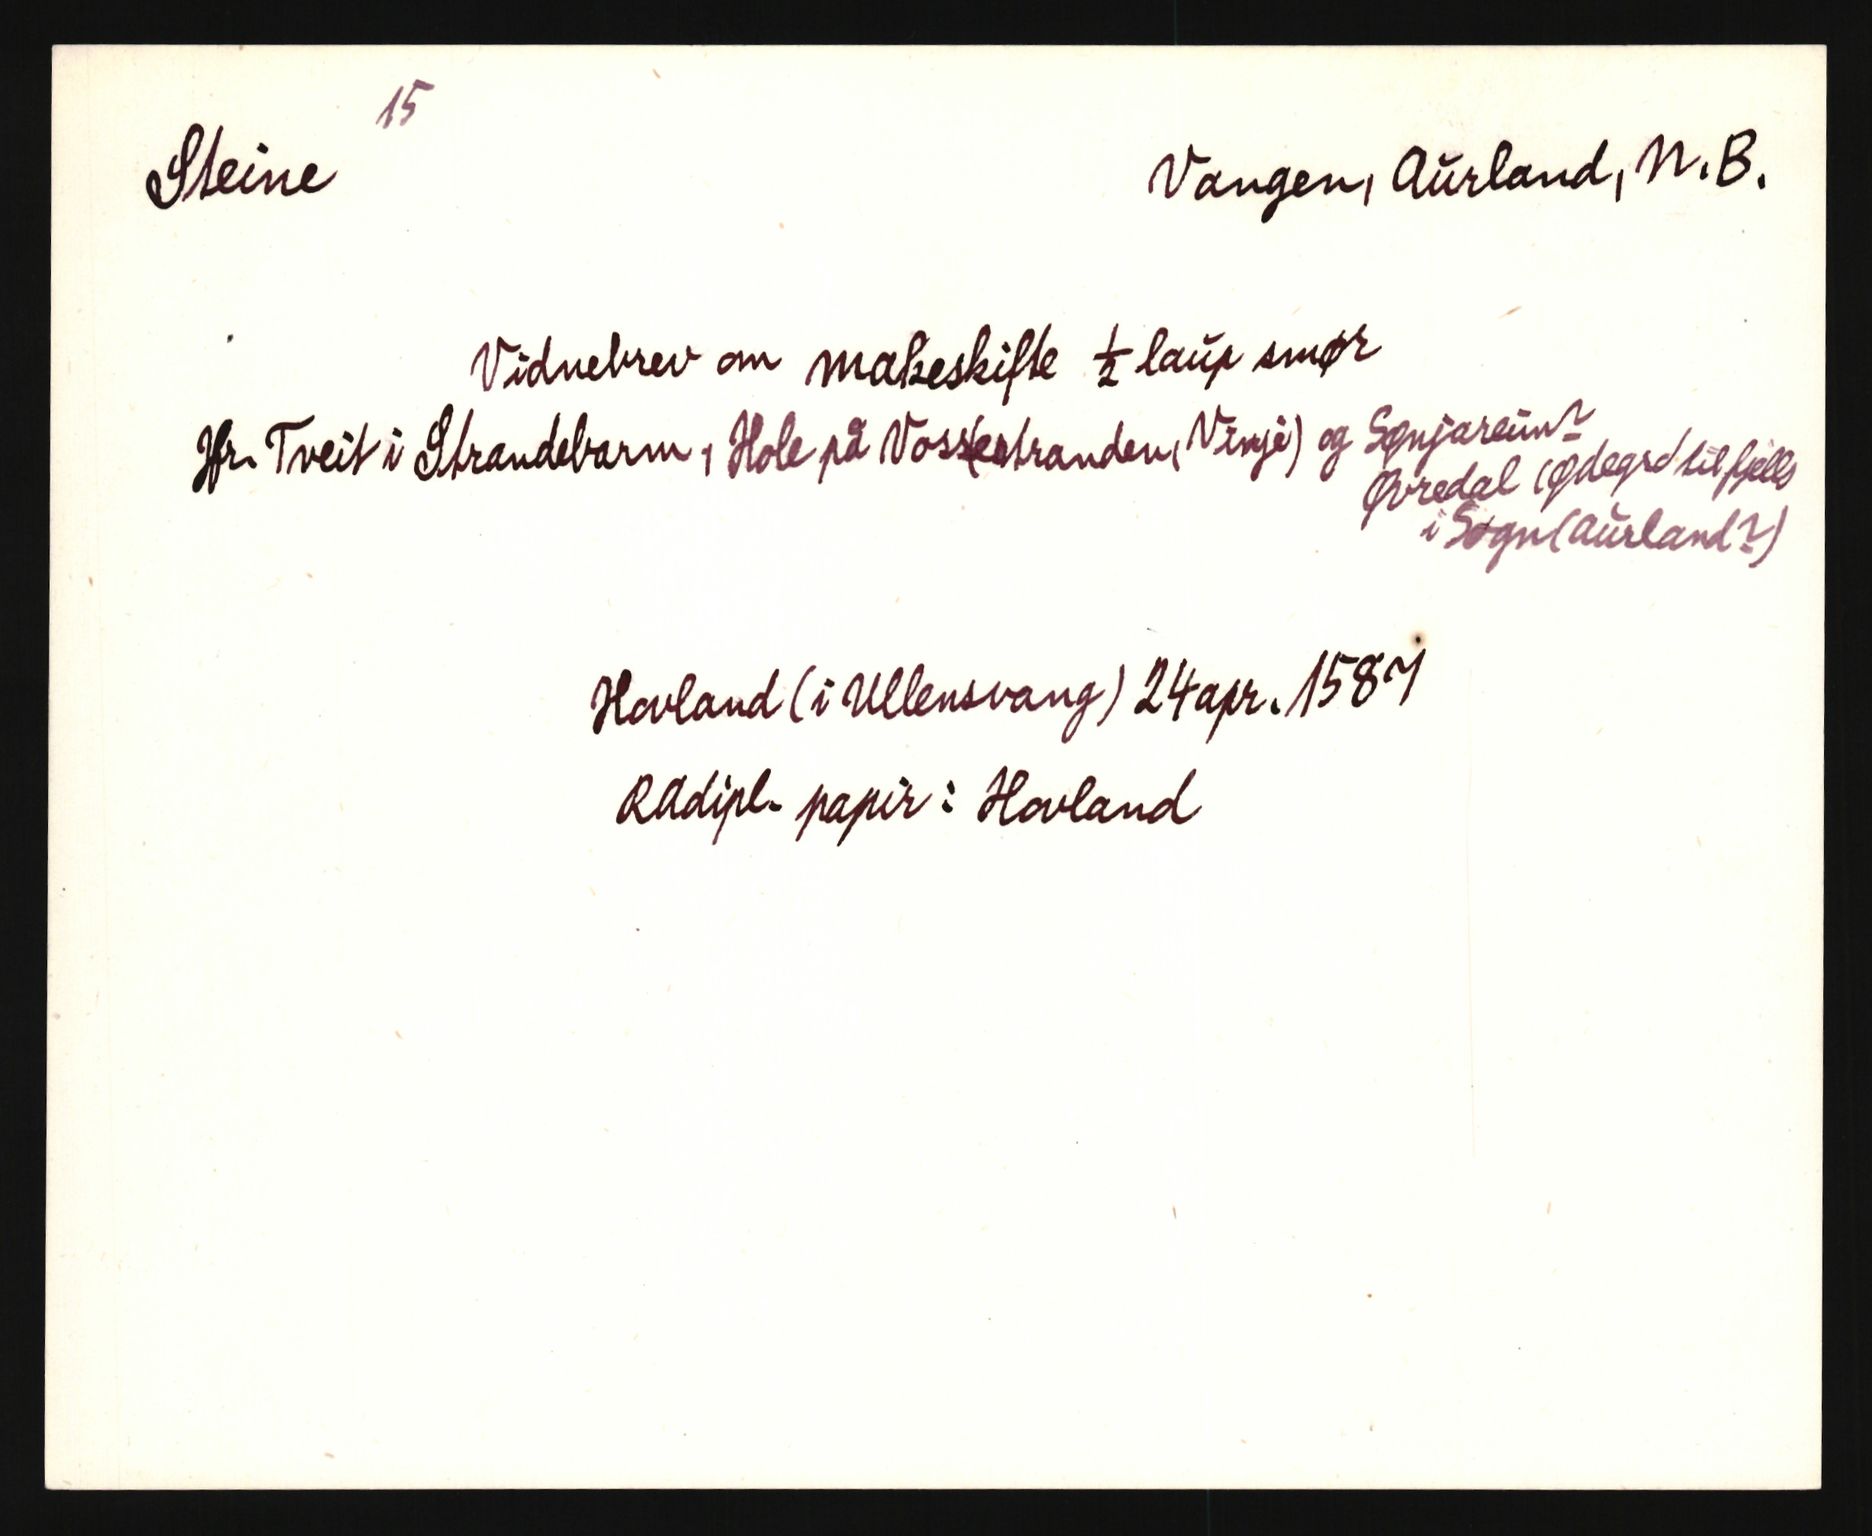 15
Steine
Vangen, Aurland, N. B.
Vidnebrev om makeskifte ½ laup smør
Jfr. Tveit i Strandebarm, Hole på Voss(estranden, Vinje) og Sønjareim?
Øvredal (Ødegrd til fjells
i Sogn (Aurland?)
Hovland (i Ullensvang) 24 apr. 1587
RAdipl. papir: Hovland